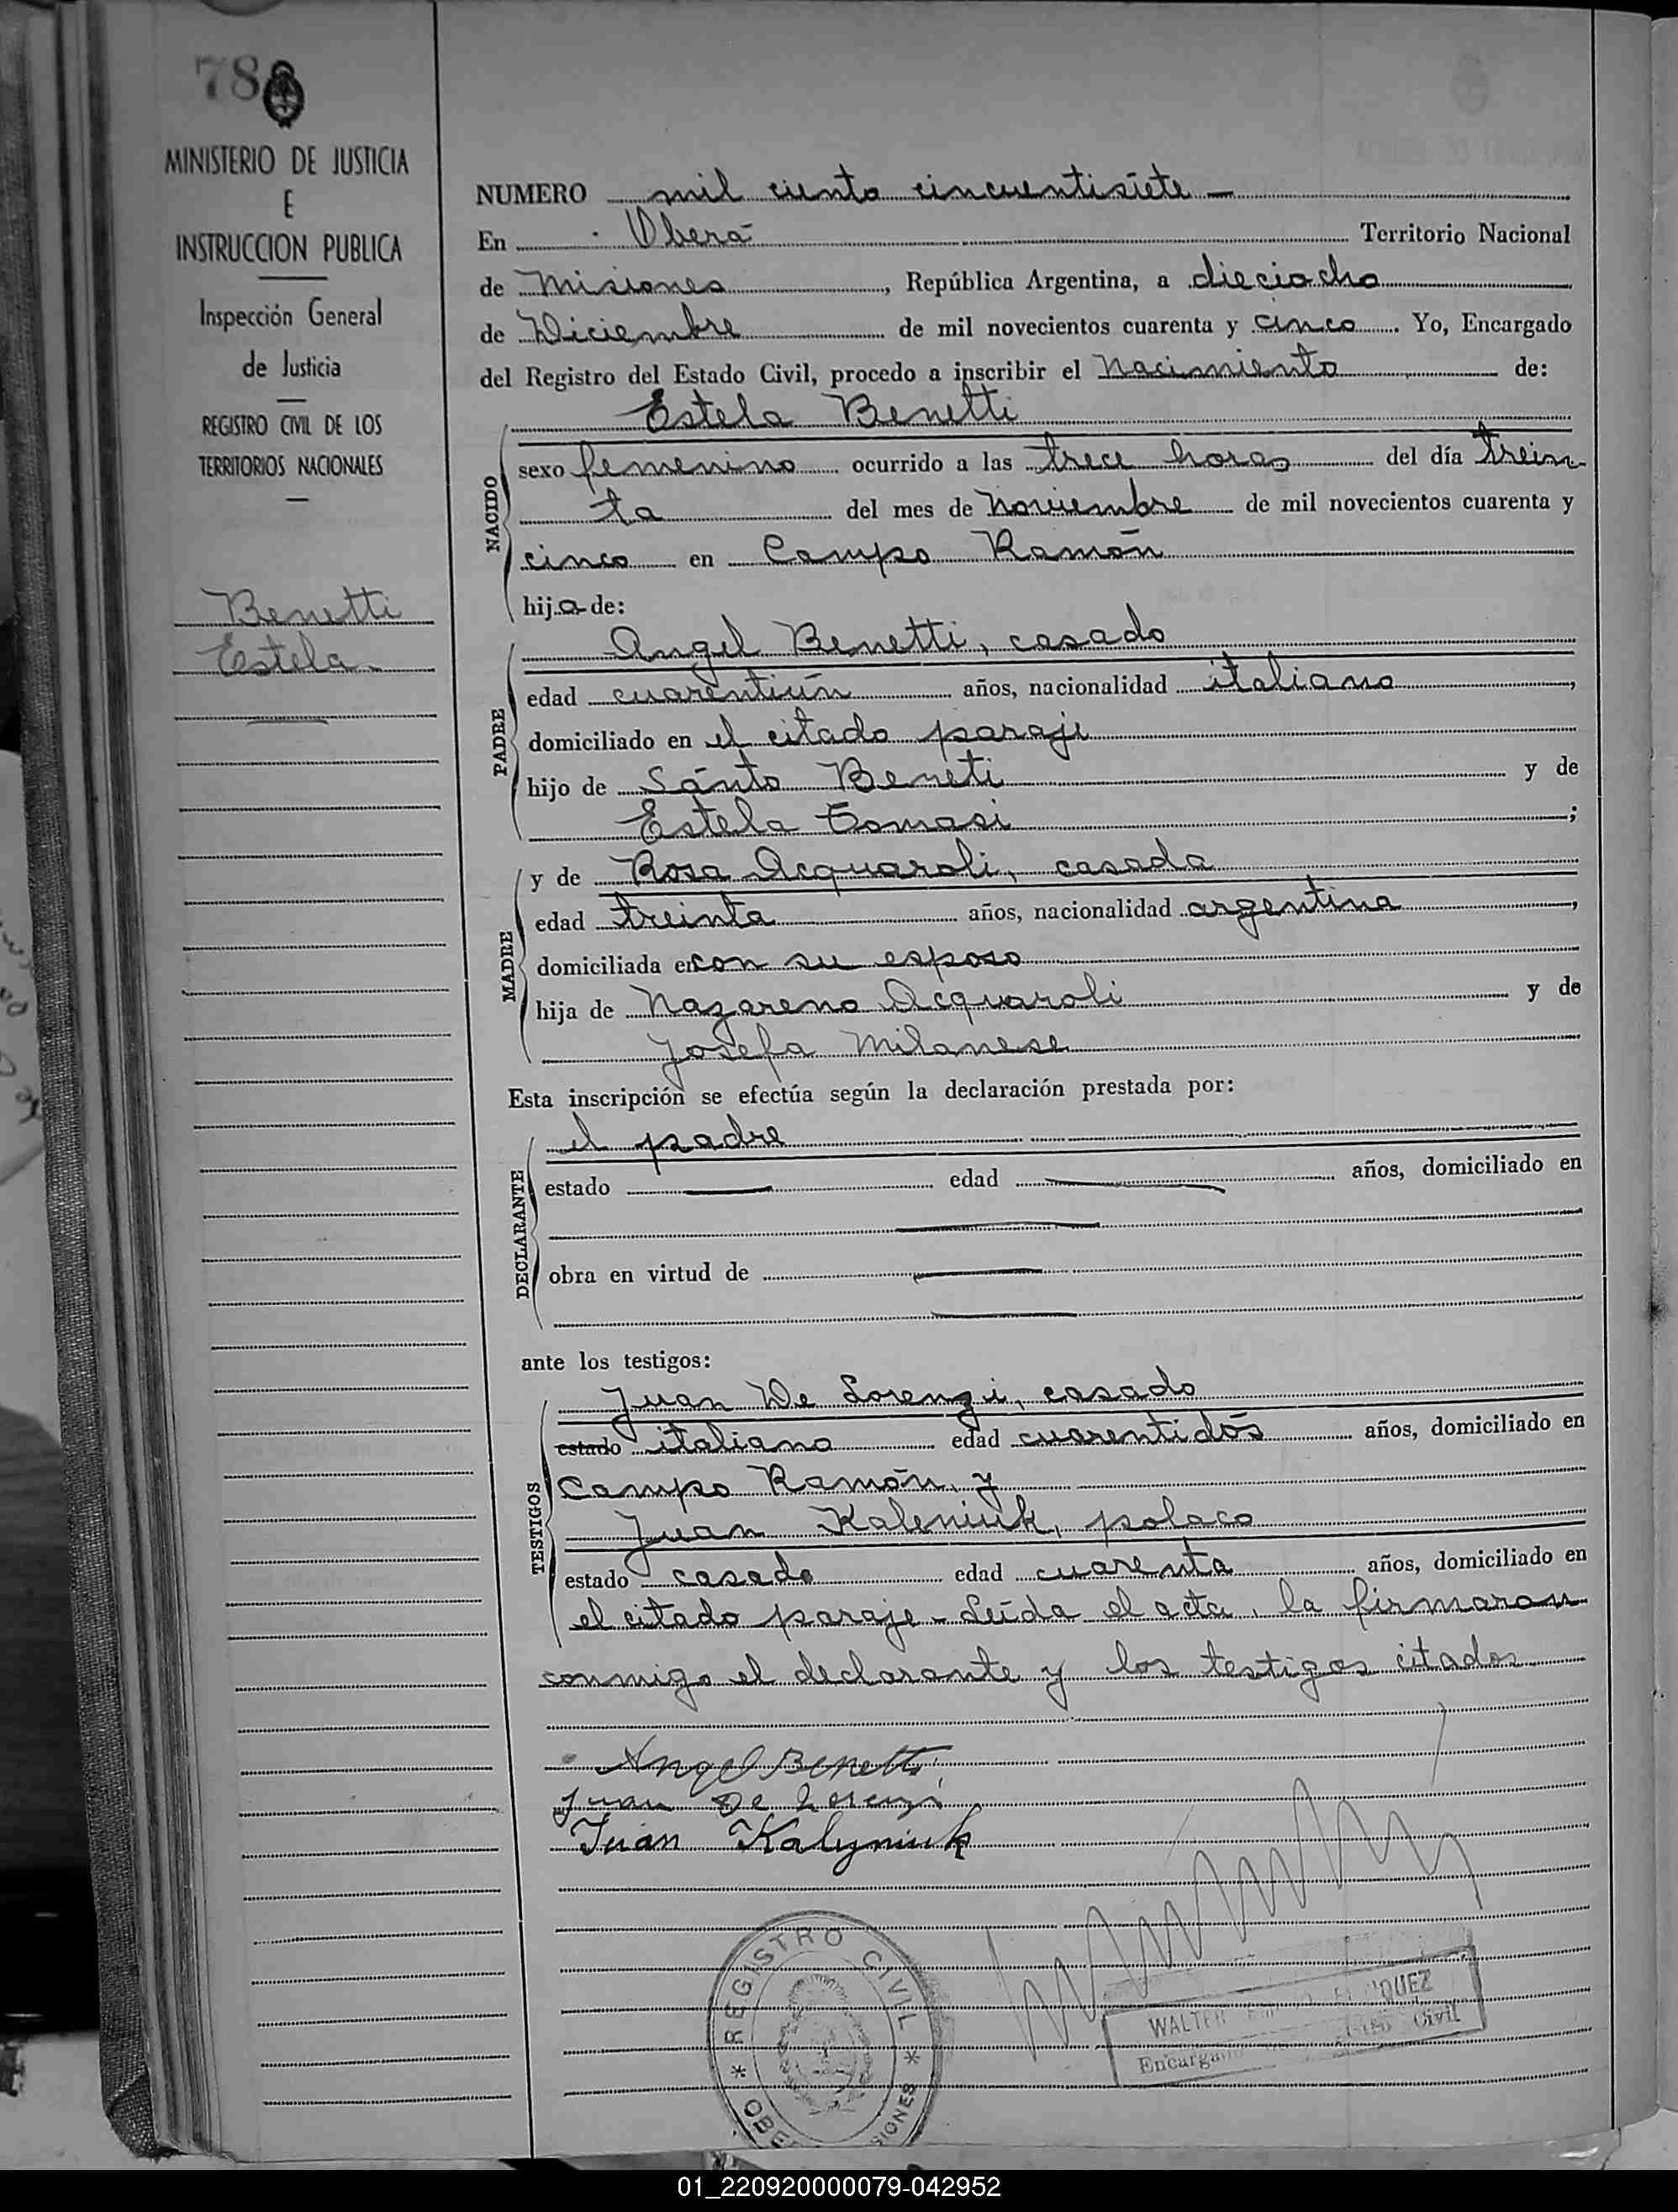 78
MINISTERIO DE JUSTICIA
E
INSTRUCCION PUBLICA
Inspección General
de Justicia
REGISTRO CIVIL DE LOS
TERRITORIOS NACIONALES
Benetti
Estela
NUMERO mil ciento cincuentisiete
En Oberá Territorio Nacional
de Misiones, República Argentina, a dieciocho
de Diciembre de mil novecientos cuarenta y cinco. Yo, Encargado
del Registro del Estado Civil, procedo a inscribir el Nacimiento de:
Estela Benetti
NACIDO
sexo femenino ocurrido a las trece horas del día trein-
ta del mes de noviembre de mil novecientos cuarenta y
cinco en Campo Ramón
hija de:
Angel Benetti, casado
PADRE
edad cuarentiún años, nacionalidad italiano,
domiciliado en el citado paraje
hijo de Santo Beneti y de
Estela Tomasi;
y de Rosa Acquaroli, casada
MADRE
edad treinta años, nacionalidad argentina,
domiciliada en con su esposo
hija de Nazareno Acquaroli y de
Josefa Milanese
Esta inscripción se efectúa según la declaración prestada por:
el padre
DECLARANTE
estado edad años, domiciliado en
obra en virtud de
ante los testigos:
Juan De Lorenzi, casado
TESTIGOS
estado italiano edad cuarentidós años, domiciliado en
Campo Ramón, y
Juan Kaleniuk, polaco
estado casado edad cuarenta años, domiciliado en
el citado paraje - Leída el acta, la firmaron
conmigo el declarante y los testigos citados
Angel Benetti
Juan De Lorenzi
Juan Kalyniuk
REGISTRO CIVIL
WALTER
Civil
01_220920000079-042952